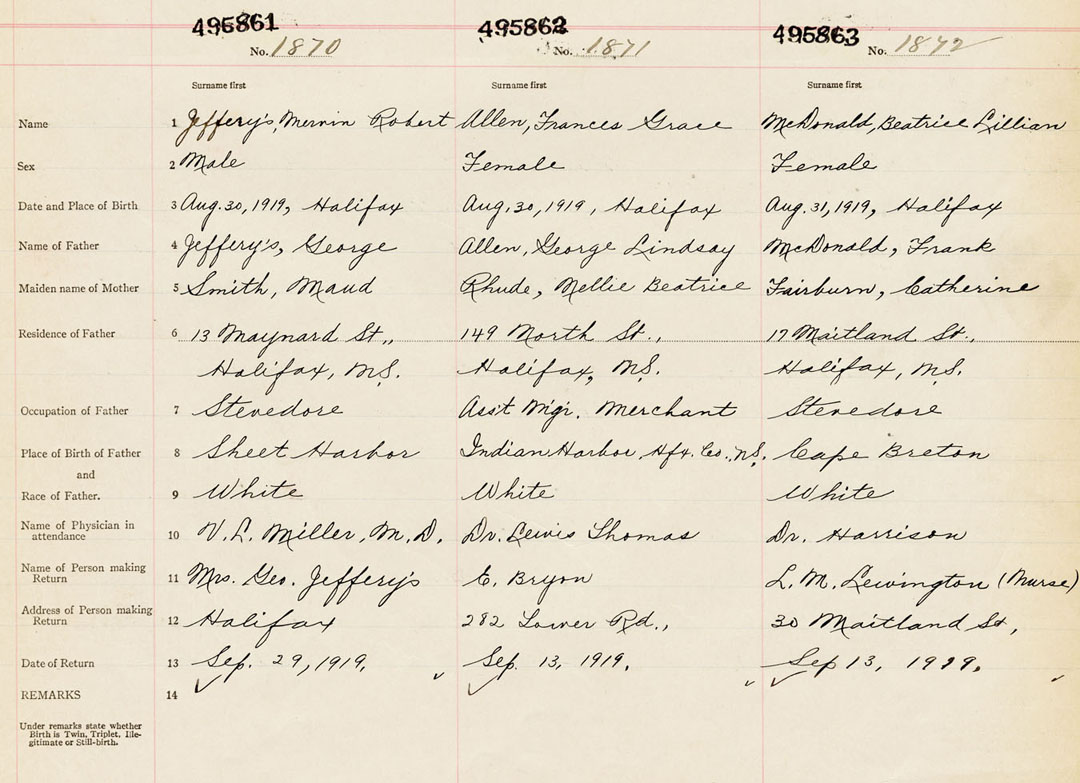 495861 495862 495863
No. 1870 No. 1871 No. 1872
Surname first Surname first Surname first
Name 1 Jeffery's, Mervin Robert Allen, Frances Grace McDonald, Beatrice Lillian
Sex 2 Male Female Female
Date and Place of Birth 3 Aug. 30, 1919, Halifax Aug. 30, 1919, Halifax Aug. 31, 1919, Halifax
Name of Father 4 Jeffery's, George Allen, George Lindsay McDonald, Frank
Maiden name of Mother 5 Smith, Maud Rhude, Nellie Beatrice Fairburn, Catherine
Residence of Father 6 13 Maynard St., 149 North St., 17 Maitland St.,
Halifax, N.S. Halifax, N.S. Halifax, N.S.
Occupation of Father 7 Stevedore Ass't Mgr. Merchant Stevedore
Place of Birth of Father 8 Sheet Harbor Indian Harbor, Hfx. Co., N.S. Cape Breton
and
Race of Father. 9 White White White
Name of Physician in
attendance 10 V. L. Miller, M.D. Dr. Lewis Thomas Dr. Harrison
Name of Person making
Return 11 Mrs. Geo. Jeffery's E. Bryon L. M. Lewington (Nurse)
Address of Person making
Return 12 Halifax 282 Lower Rd., 30 Maitland St.,
Date of Return 13 Sep. 29, 1919. Sep. 13, 1919. Sep 13, 1919.
REMARKS 14
Under remarks state whether
Birth is Twin, Triplet, Ille-
gitimate or Still-birth.